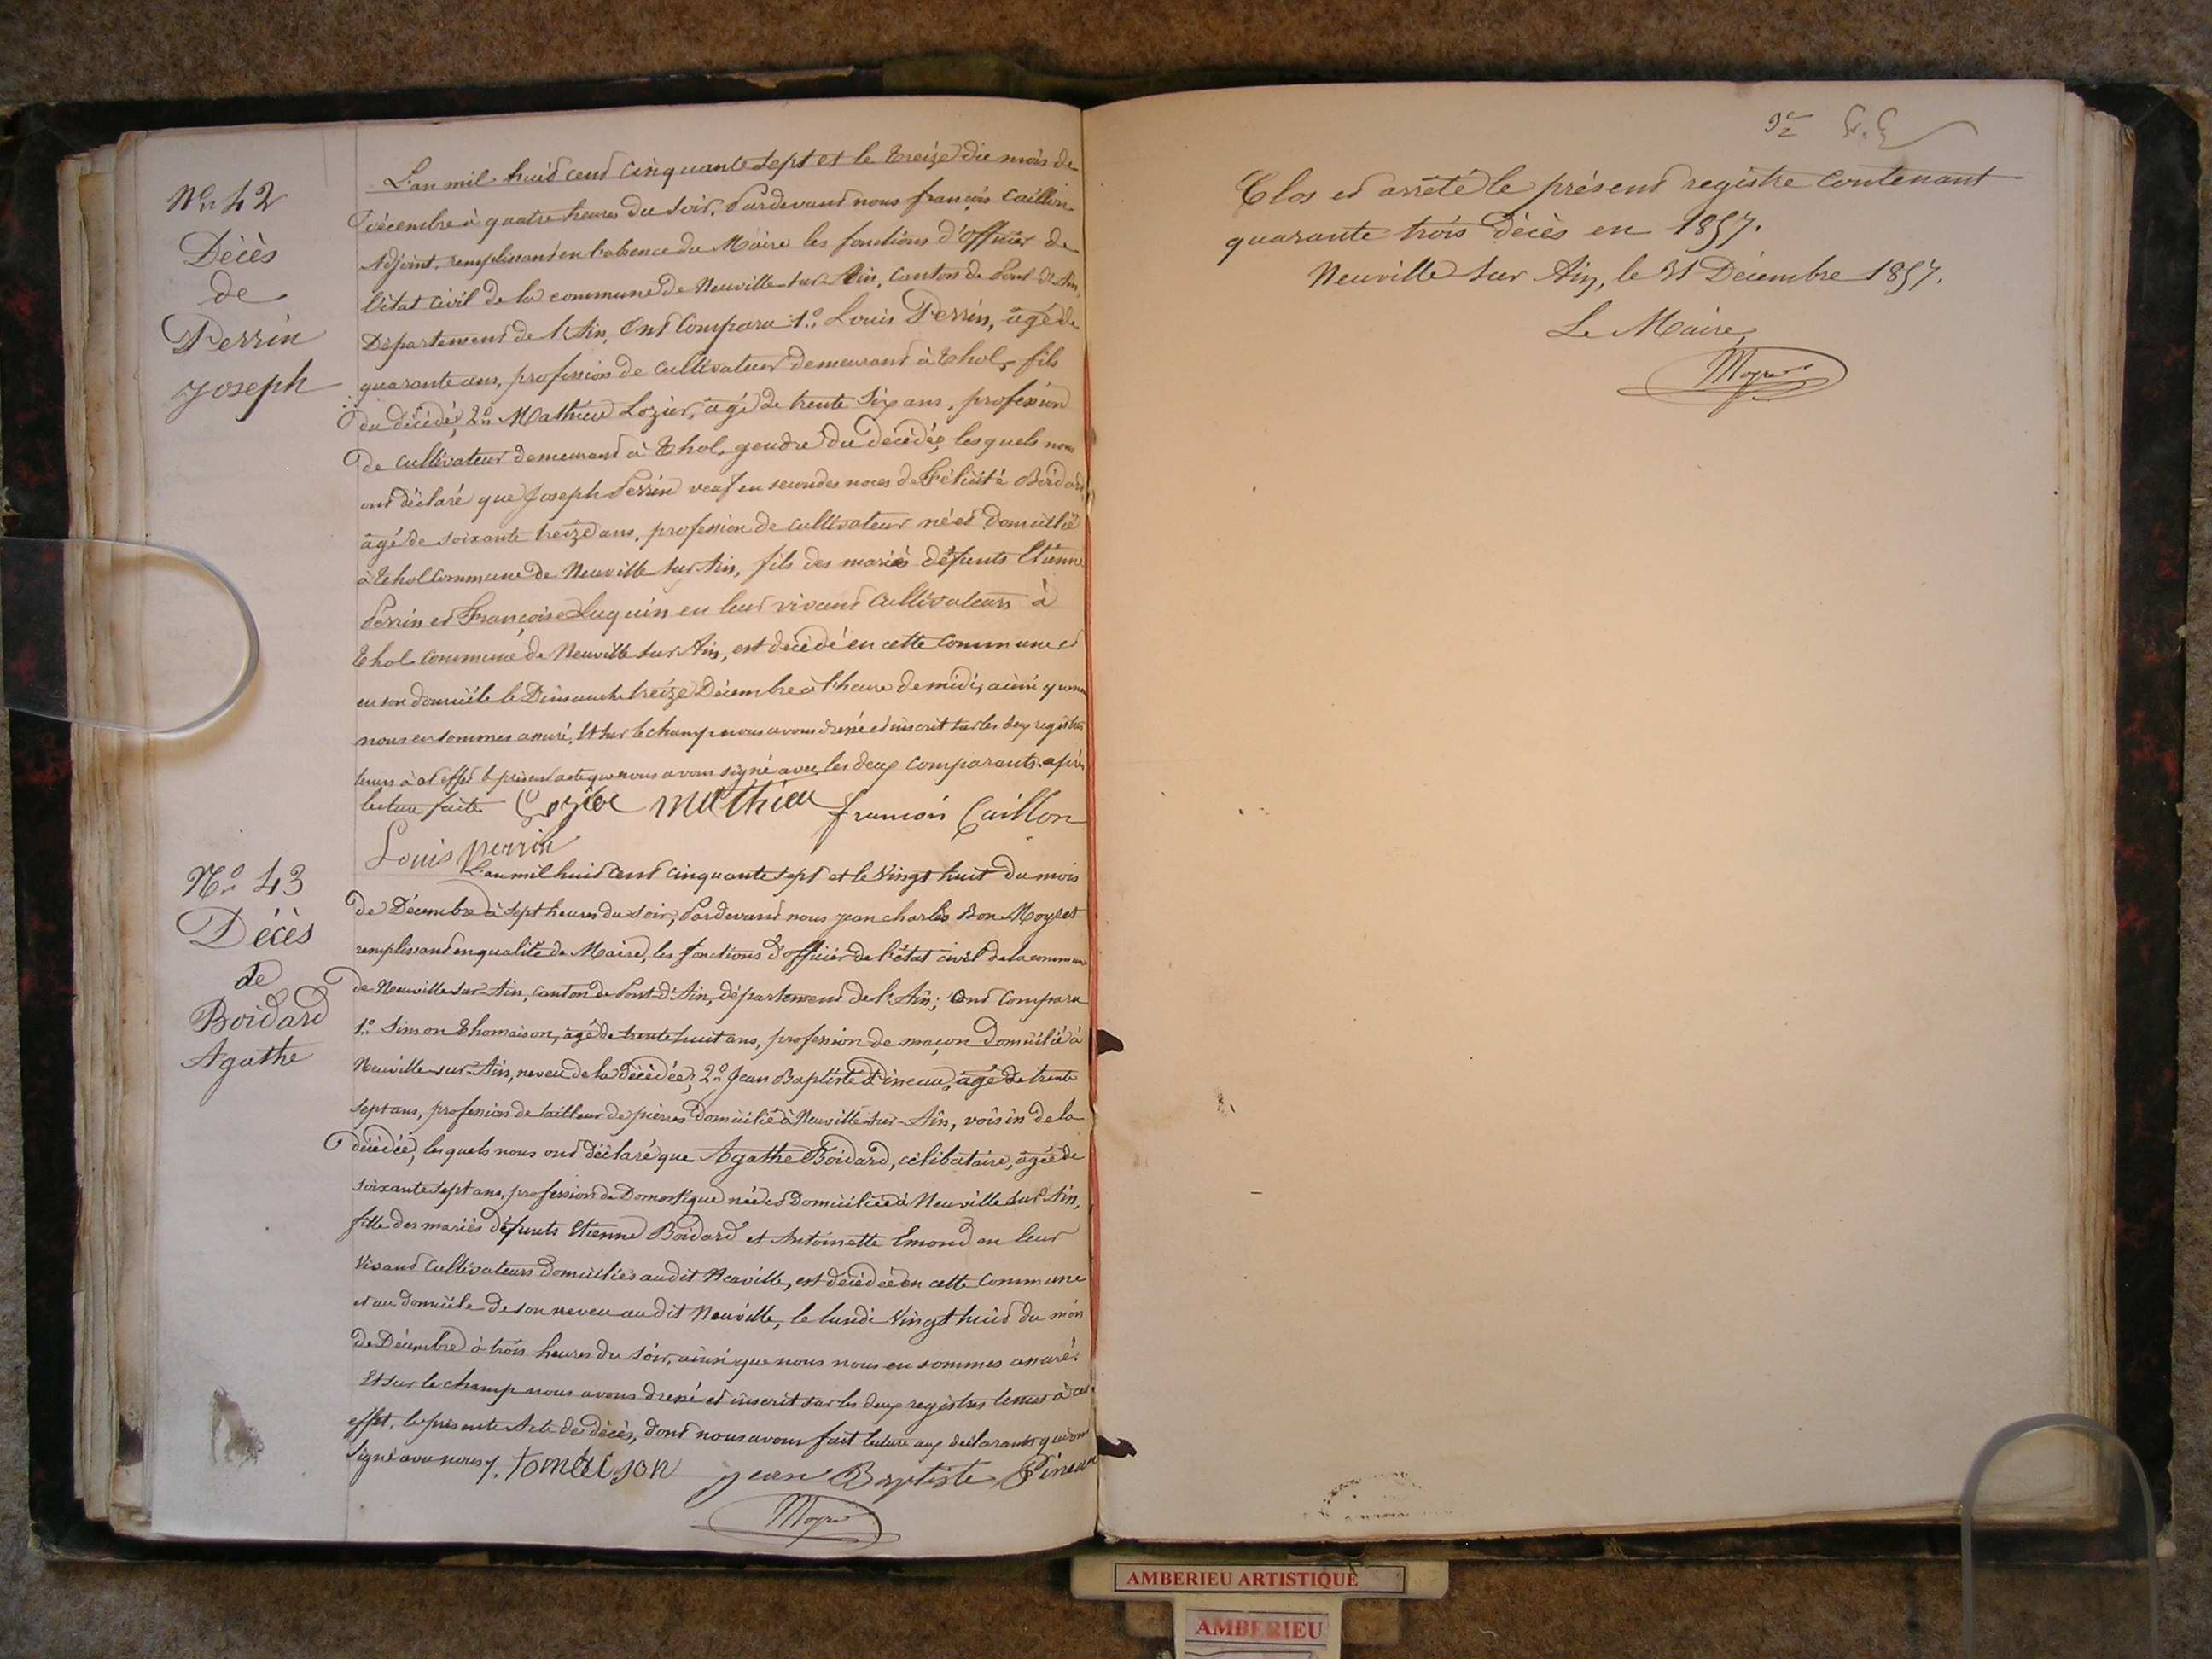 N.o 42
Décès
de
Perrin
Joseph
L'an mil huit cent cinquante sept et le treize du mois de
Décembre à quatre heures du soir, Pardevant nous françois Caillon
Adjoint, remplissant en l'absence du Maire les fonctions d'officier de
l'état civil de la commune de Neuville sur Ain, canton de Pont d'Ain,
Département de l'Ain, Ont Comparu 1.o Louis Perrin, âgé de
quarante ans, profession de cultivateur demeurant à Thol, fils
du décédé, 2.o Mathieu Lozier, âgé de trente six ans, profession
de cultivateur demeurant à Thol, gendre du décédé, lesquels nous
ont déclaré que Joseph Perrin veuf en secondes noces de Félicité Boidard
âgé de soixante treize ans, profession de cultivateur né et domicilié
à Thol commune de Neuville sur Ain, fils des mariés défunts Etienne
Perrin et Françoise Luquin en leur vivant cultivateurs à
Thol commune de Neuville sur Ain, est décédé en cette commune et
en son domicile le Dimanche treize Décembre à l'heure de midi, ainsi que nous
nous en sommes assuré, Et sur le champ nous avons dressé et inscrit sur les deux registres
tenus à cet effet le présent acte que nous avons signé avec les deux comparants après
lecture faite Lozier mathieu françois Caillon
Louis perrin
N.o 43
Décès
de
Boidard
Agathe
L'an mil huit cent cinquante sept et le vingt huit du mois
de Décembre à sept heures du soir, Pardevant nous jean charles Bon Moyret
remplissant en qualité de Maire, les fonctions d'officier de l'état civil de la commune
de Neuville sur Ain, canton de Pont-d'Ain, département de l'Ain; Ont comparu
1.o Simon Thomaison, âgé de trente huit ans, profession de maçon domicilié à
Neuville-sur-Ain, neveu de la décédée, 2.o Jean Baptiste Pineau, âgé de trente
sept ans, profession de tailleur de pierres domicilié à Neuville-sur-Ain, voisin de la
décédée, lesquels nous ont déclaré que Agathe Boidard, célibataire, âgée de
soixante sept ans, profession de Domestique née et domiciliée à Neuville sur Ain,
fille des mariés défunts Etienne Boidard et Antoinette Emond en leur
vivant cultivateurs domiciliés audit Neuville, est décédée en cette commune
et au domicile de son neveu audit Neuville, le lundi vingt huit du mois
de Décembre à trois heures du soir, ainsi que nous nous en sommes assuré.
Et sur le champ nous avons dressé et inscrit sur les deux registres tenus à cet
effet, le présente Acte de décès, dont nous avons fait lecture aux déclarants qui ont
signé avec nous. tomaison jean Baptiste Pineau
Moyret
Clos et arrêté le présent registre contenant
quarante trois décès en 1857.
Neuville sur Ain, le 31 Décembre 1857.
Le Maire,
Moyret
AMBERIEU ARTISTIQUE
AMBERIEU